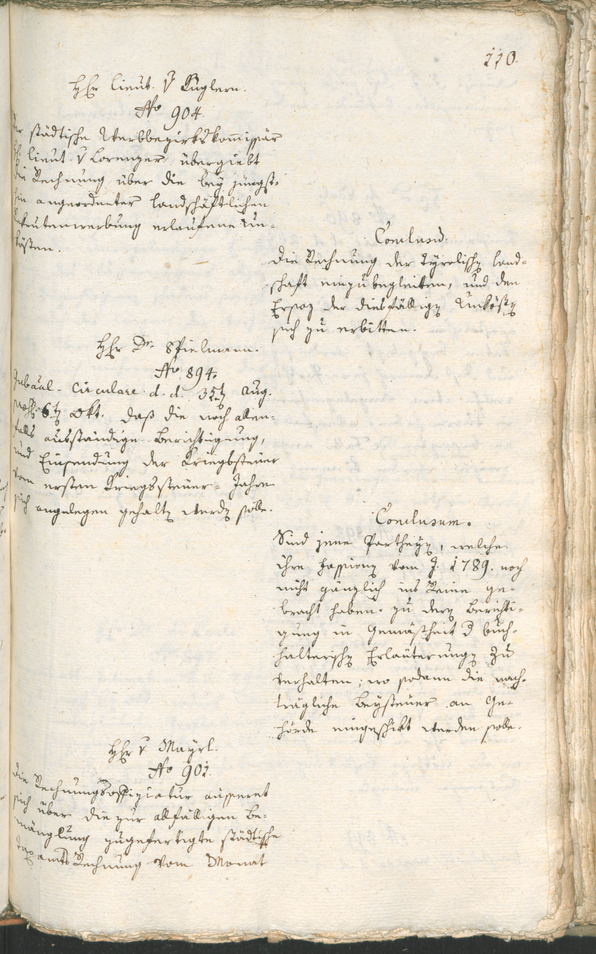 110.
HHr Lieut. v Kuglern.
No 904.
Der städtische Werbbezirkskommissär
Hr Lieut v Lorenzer übergiebt
die Rechnung über die bey jüngst-
hin angeordneter landschäftlichen
Rekrutenwerbung erlaufene Un-
kösten.
Conclusum.
Die Rechnung der Tyrolischen Land-
schaft einzubegleiten, und den
Ersaz der diesfälligen Unkösten
sich zu erbitten.
HHr Dr. Spielmann.
No 894.
Gubäal-Circulare d. d. Aug.
6ten Okt. daß die noch allen-
falls ausständige Berichtigung,
und Einsendung der Kriegssteuer
vom ersten Kriegssteuer-Jahre
sich angelegen gehalten werden solle.
Conclusum.
Sind jene Partheyen, welche
ihre Fassionen vom J. 1789. noch
nicht gänzlich ins Reine ge-
bracht haben, zu deren Berichti-
gung in Gemäßheit d buch-
halterischen Erläuterungen zu
verhalten; wo sodann die nach-
trägliche Beysteuer an Ge-
hörde eingeschikt werden solle.
HHr v Mayrl.
No 902.
Die Rechnungsoffiziatur äusseret
sich über die zur allfälligen Be-
mänglung zugefertigte städtische
Taxamts Rechnung vom Monat